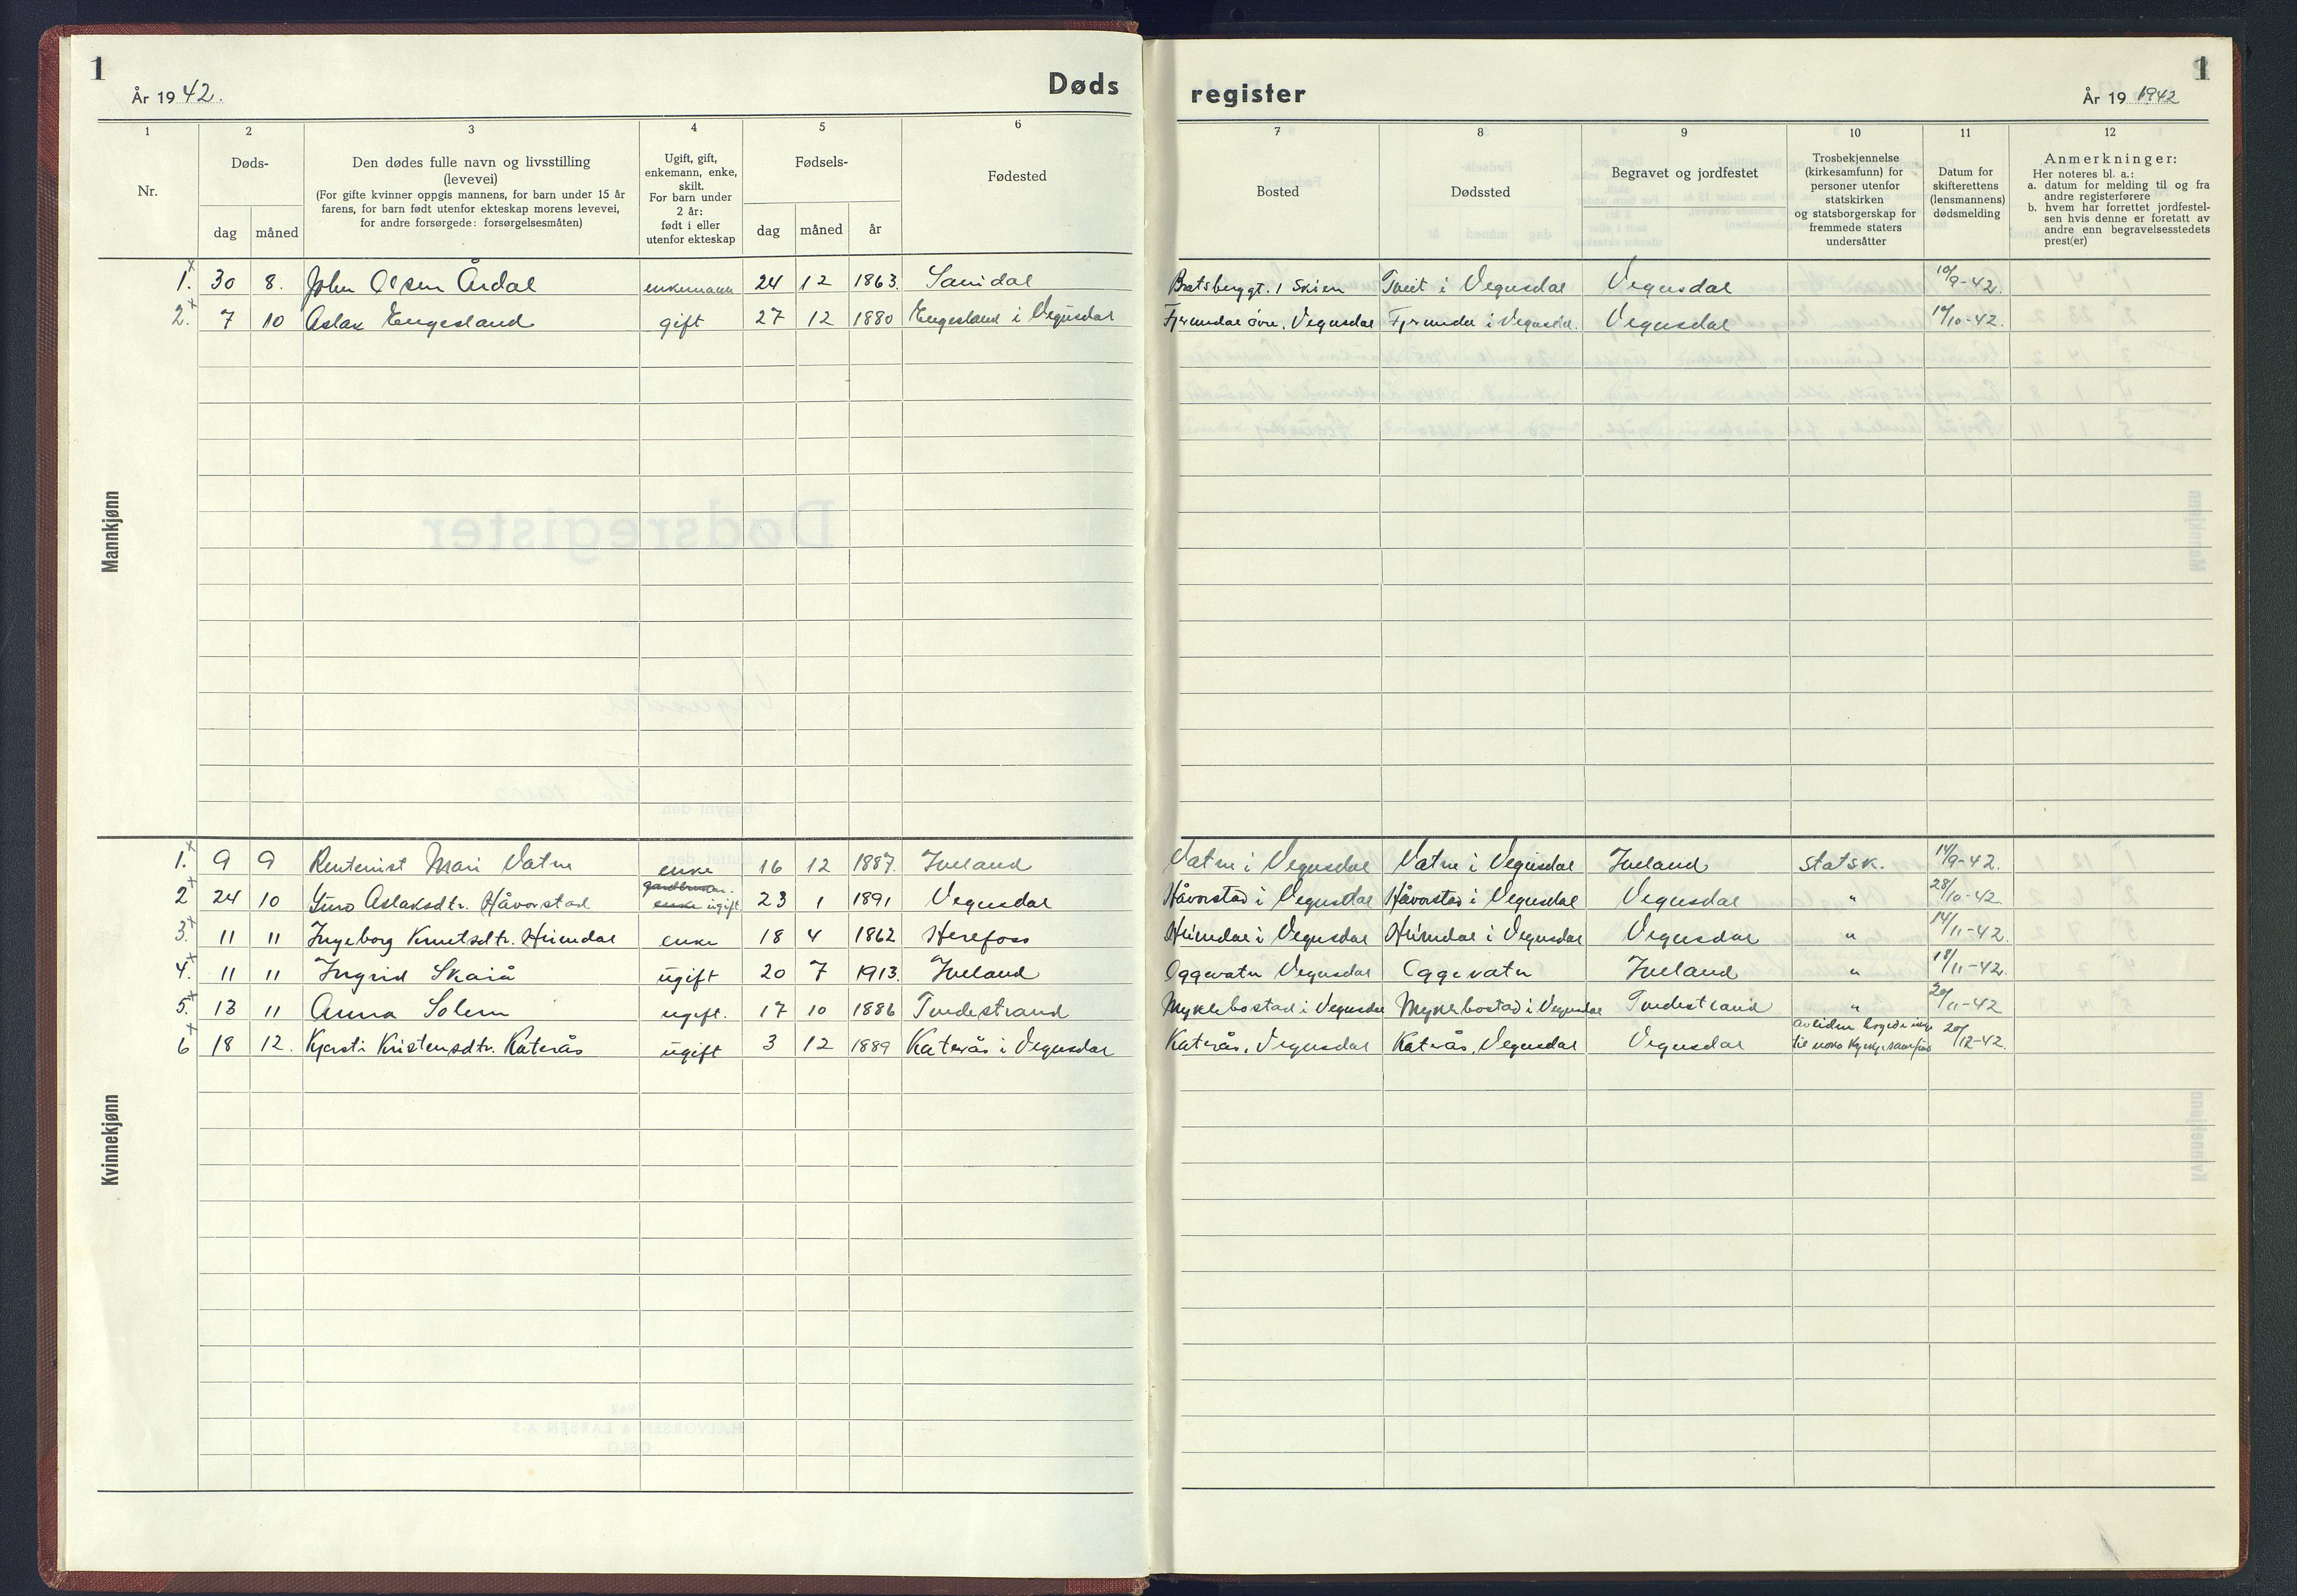 1
År 1942.
Døds
1 2 3 4 5 6
Nr.
Døds-
dag måned
Den dødes fulle navn og livsstilling
(levevei)
(For gifte kvinner oppgis mannens, for barn under 15 år
farens, for barn født utenfor ekteskap morens levevei,
for andre forsørgede: forsørgelsesmåten)
Ugift, gift,
enkemann, enke,
skilt.
For barn under
2 år:
født i eller
utenfor ekteskap
Fødsels-
dag måned år
Fødested
Mannkjønn
1. 30 8. John Olsen Årdal enkemann 24 12 1863. Sanidal
2. 7 10 Aslak Engesland gift 27 12 1880 Engesland i Vegusdal
Kvinnekjønn
1. 9 9 Rentenist Mari Vatne enke 16 12 1887. Iveland
2 24 10 Guro Aslaksdtr. Håvorstad enke ugift 23 1 1891 Vegusdal
3. 11 11 Ingeborg Knutsdtr. Heimdal enke 18 4 1862 Herefoss
4. 11 11 Ingrid Skaiå ugift 20 7 1913. Iveland
5. 13 11 Anna Solem ugift. 17 10 1886 Tvedestrand
6 18 12. Kjersti Kristensdtr. Katerås ugift 3 12 1889 Katerås i Vegusdal
register
1
År 19 1942
7 8 9 10 11 12
Bosted
Dødssted
Begravet og jordfestet
Trosbekjennelse
(kirkesamfunn) for
personer utenfor
statskirken
og statsborgerskap for
fremmede staters
undersåtter
Datum for
skifterettens
(lensmannens)
dødsmelding
Anmerkninger:
Her noteres bl. a.:
a. datum for melding til og fra
andre registerførere
b. hvem har forrettet jordfestel-
sen hvis denne er foretatt av
andre enn begravelsesstedets
prest(er)
Bratsberggt. 1 Skien Tveit i Vegusdal Vegusdal 10/9-42.
Fjermdal øvre, Vegusdal Fjermdal i Vegusdal. Vegusdal 14/10-42.
Vatne i Vegusdal Vatne i Vegusdal Iveland statsk. 14/9-42.
Håvorstad i Vegusdal Håvorstad i Vegusdal Vegusdal " 28/10-42.
Heimdal i Vegusdal Heimdal i Vegusdal Vegusdal " 14/11-42.
Oggevatn Vegusdal Oggevatn Iveland " 18/11-42.
Myklebostad i Vegusdal Myklebostad i Vegusdal Tvedestrand " 20/11-42
Katerås, Vegusdal Katerås, Vegusdal Vegusdal avliden høyrde ikkje
til noko kyrkjesamfund 20/12-42.